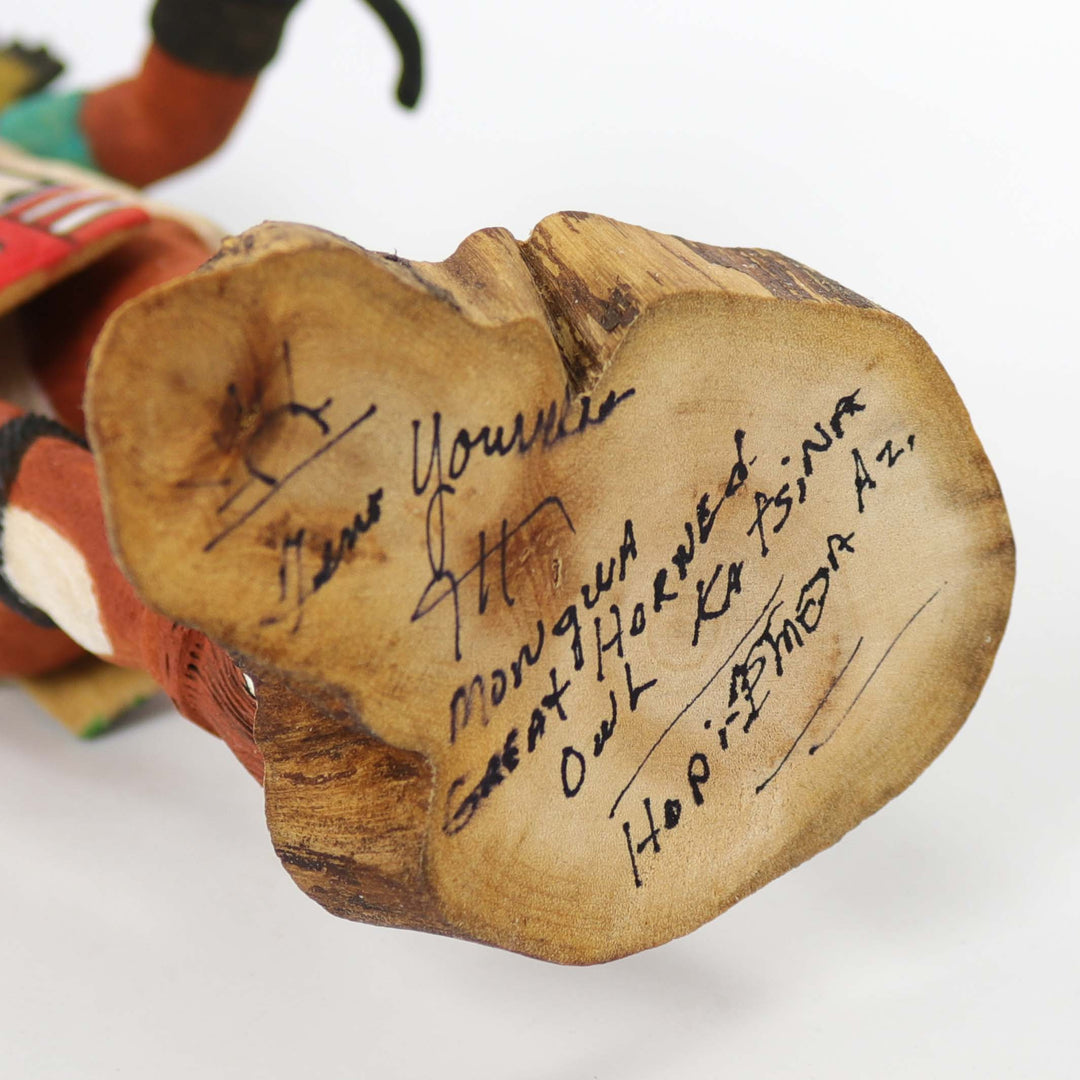 Tino Youvella
MONgWA
GREAt HORNEd
OwL KAtSiNA
Hopi AZ.